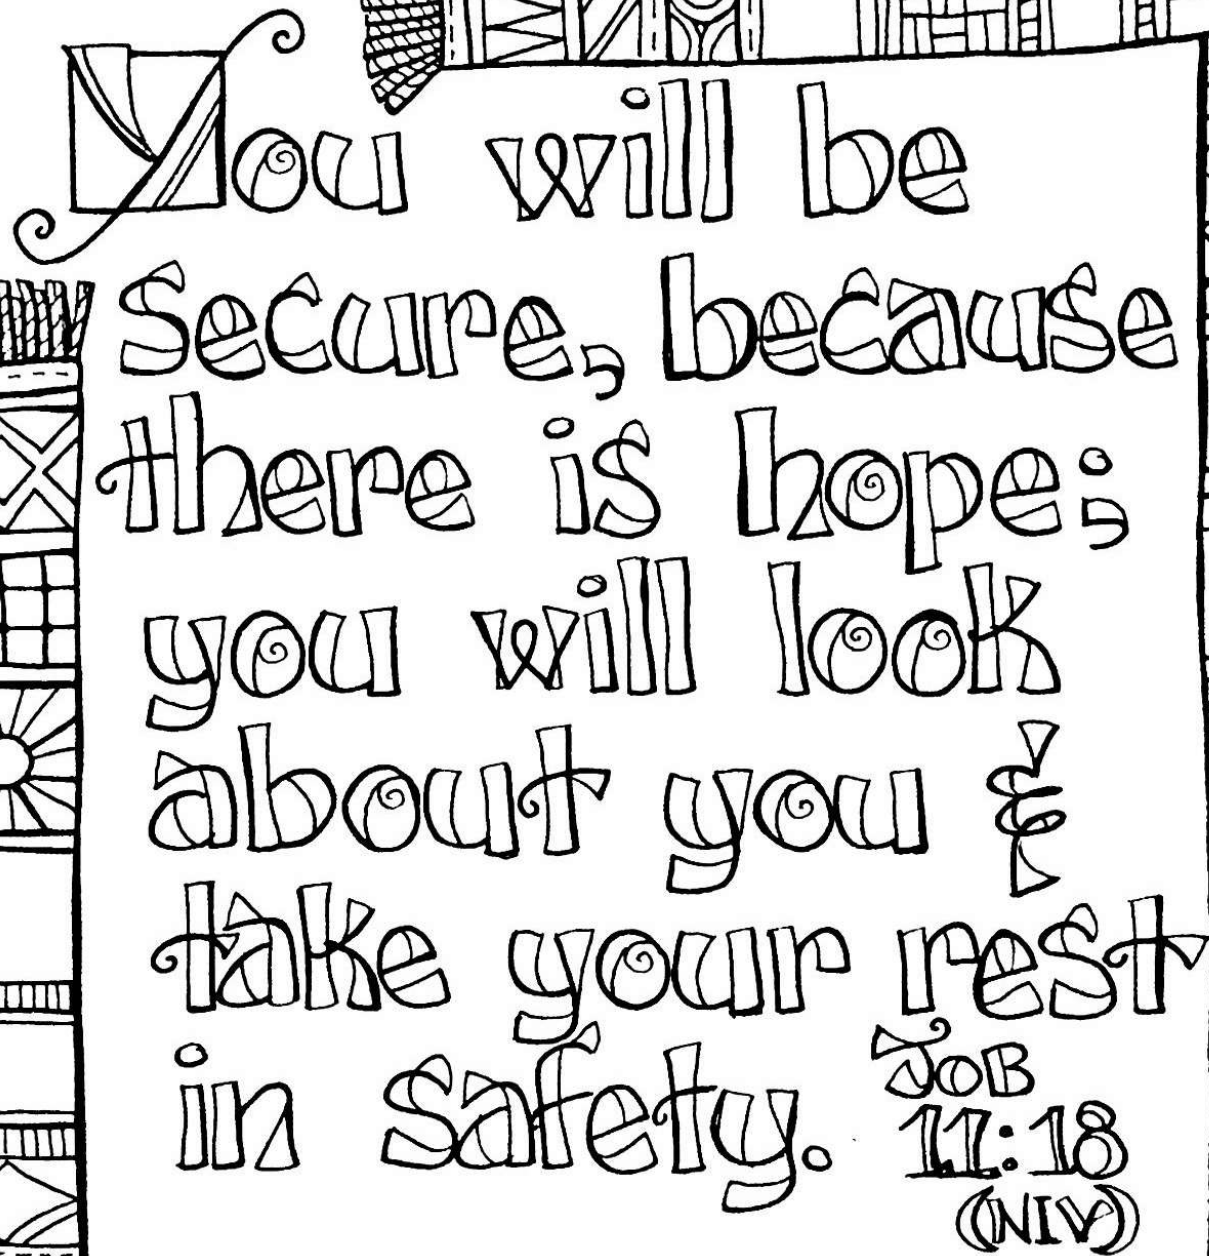 You will be
secure, because
there is hope;
you will look
about you &
take your rest
in safety.
JOB
11:18
(NIV)